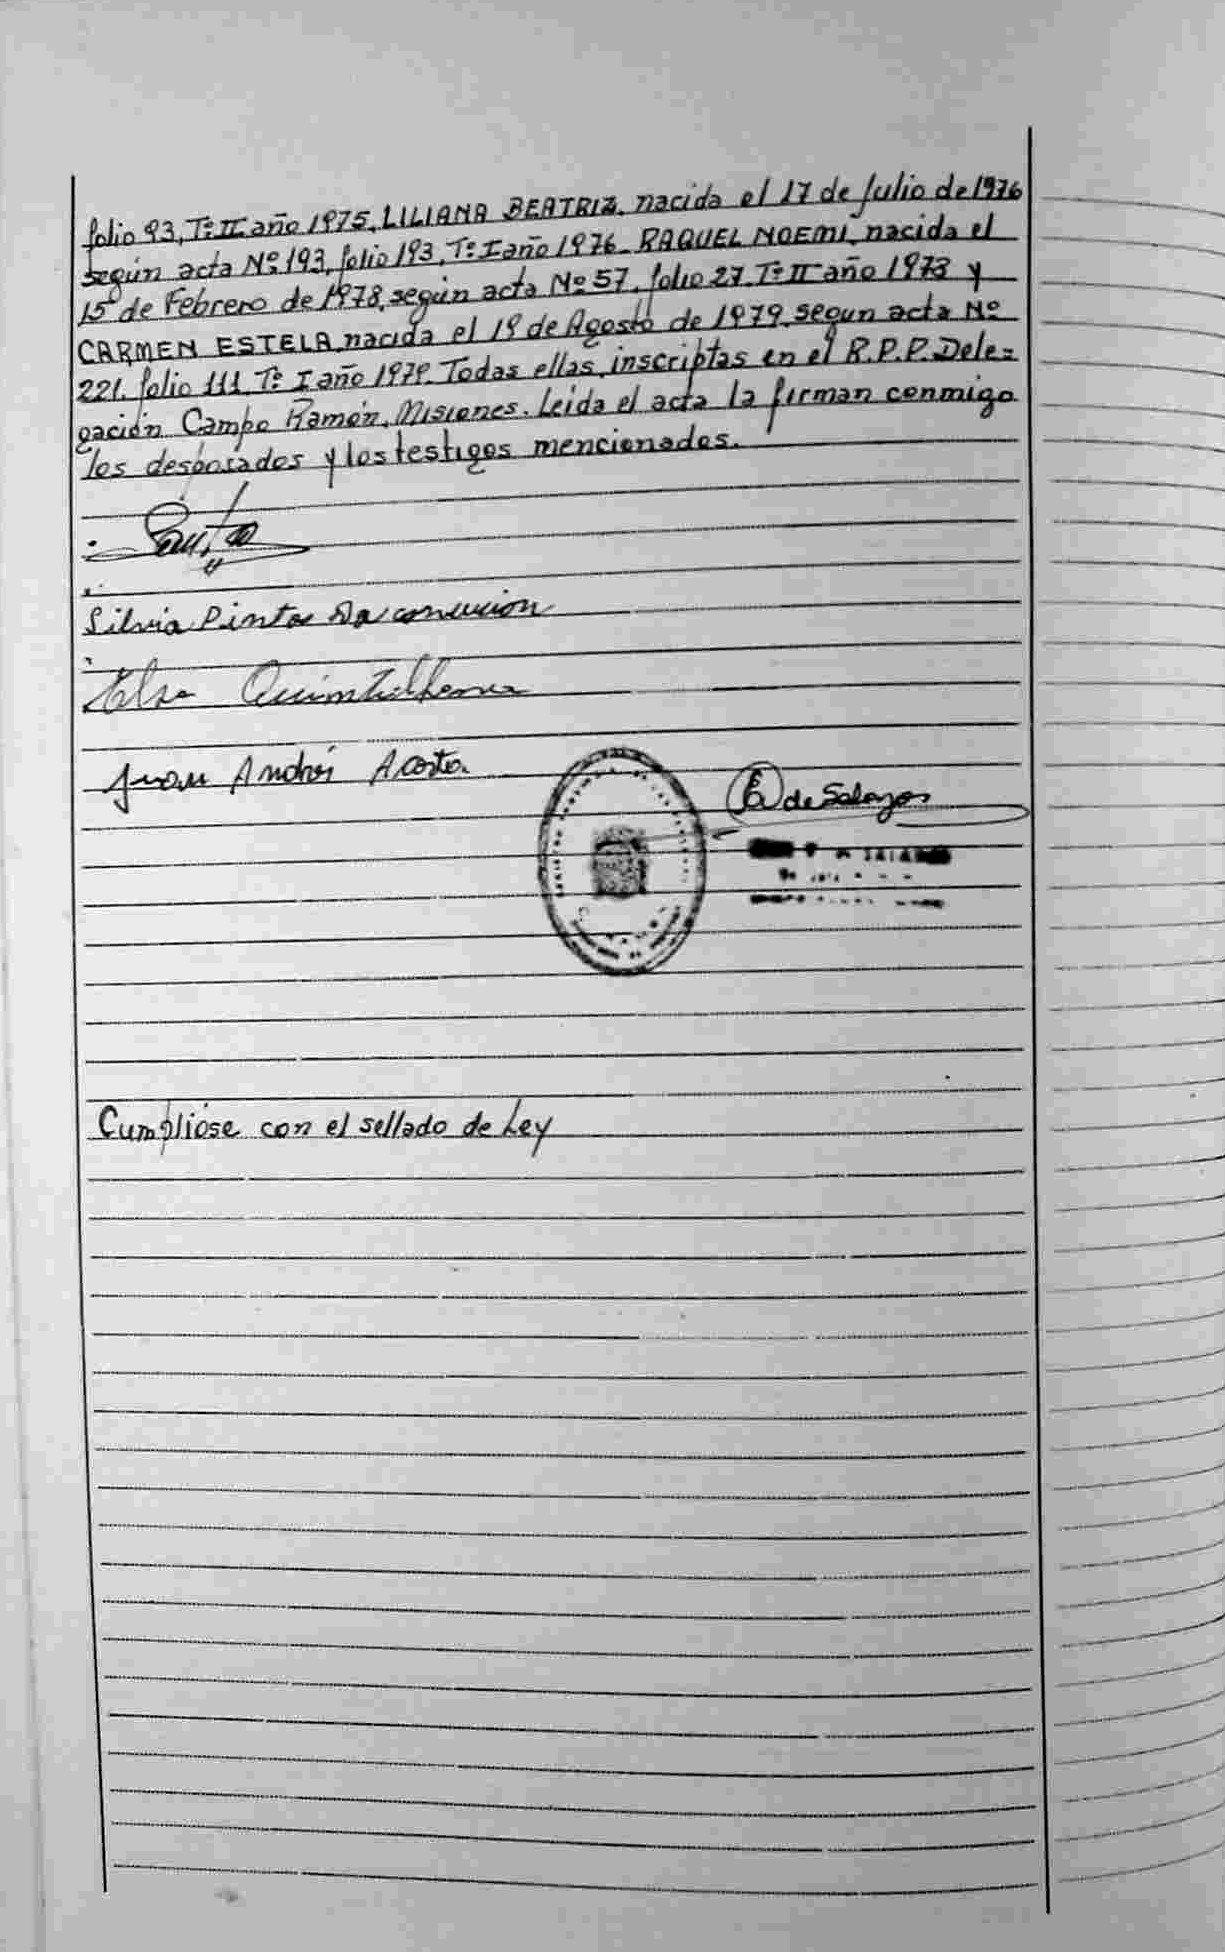 folio 93, Tº II año 1975, LILIANA BEATRIZ, nacida el 17 de Julio de 1976
según acta Nº 193, folio 193, Tº I año 1976. RAQUEL NOEMI, nacida el
15 de Febrero de 1978, según acta Nº 57, folio 27. Tº II año 1973 y
CARMEN ESTELA, nacida el 19 de Agosto de 1979, segun acta Nº
221. folio 111 Tº I año 1979. Todas ellas, inscriptas en el R.P.P. Dele=
gación Campo Ramón, Misiones. Leida el acta la firman conmigo
los desposados y los testigos mencionados.
Silvia Pinto Da
Elsa
Juan Andrés Acosta.
de Salazar
Cumplióse con el sellado de Ley